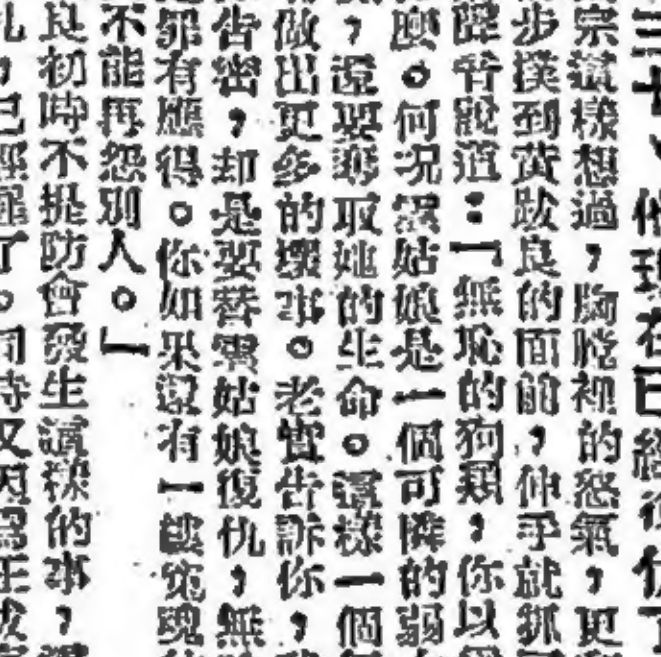 三十、他現在已經
宗這樣想過，胸腔裡的怒氣，更
步撲到黃跛良的面前，伸手就抓
聲音說道：「無恥的狗類，你以
。何况姑娘是一個可憐的弱
，還要奪取她的生命。這樣一個
做出更多的壞事。老實告訴你，
告密，却是要替姑娘復仇，無
罪有應得。你如果還有一縷寃魂
不能再怨別人。」
良初時不提防會發生這樣的事，
，已經了。同時又因為王